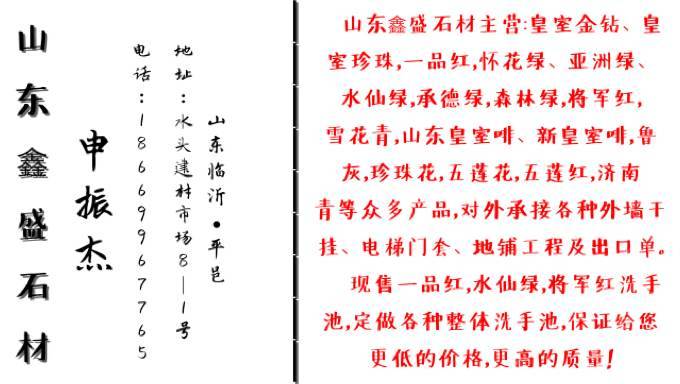 山东鑫盛石材
申振杰
电话:18669967765
地址:水头建材市场8—1号
山东临沂•平邑
山东鑫盛石材主营:皇室金钻、皇
室珍珠,一品红,怀花绿、亚洲绿、
水仙绿,承德绿,森林绿,将军红,
雪花青,山东皇室啡、新皇室啡,鲁
灰,珍珠花,五莲花,五莲红,济南
青等众多产品,对外承接各种外墙干
挂、电梯门套、地铺工程及出口单。
现售一品红,水仙绿,将军红洗手
池,定做各种整体洗手池,保证给您
更低的价格,更高的质量!